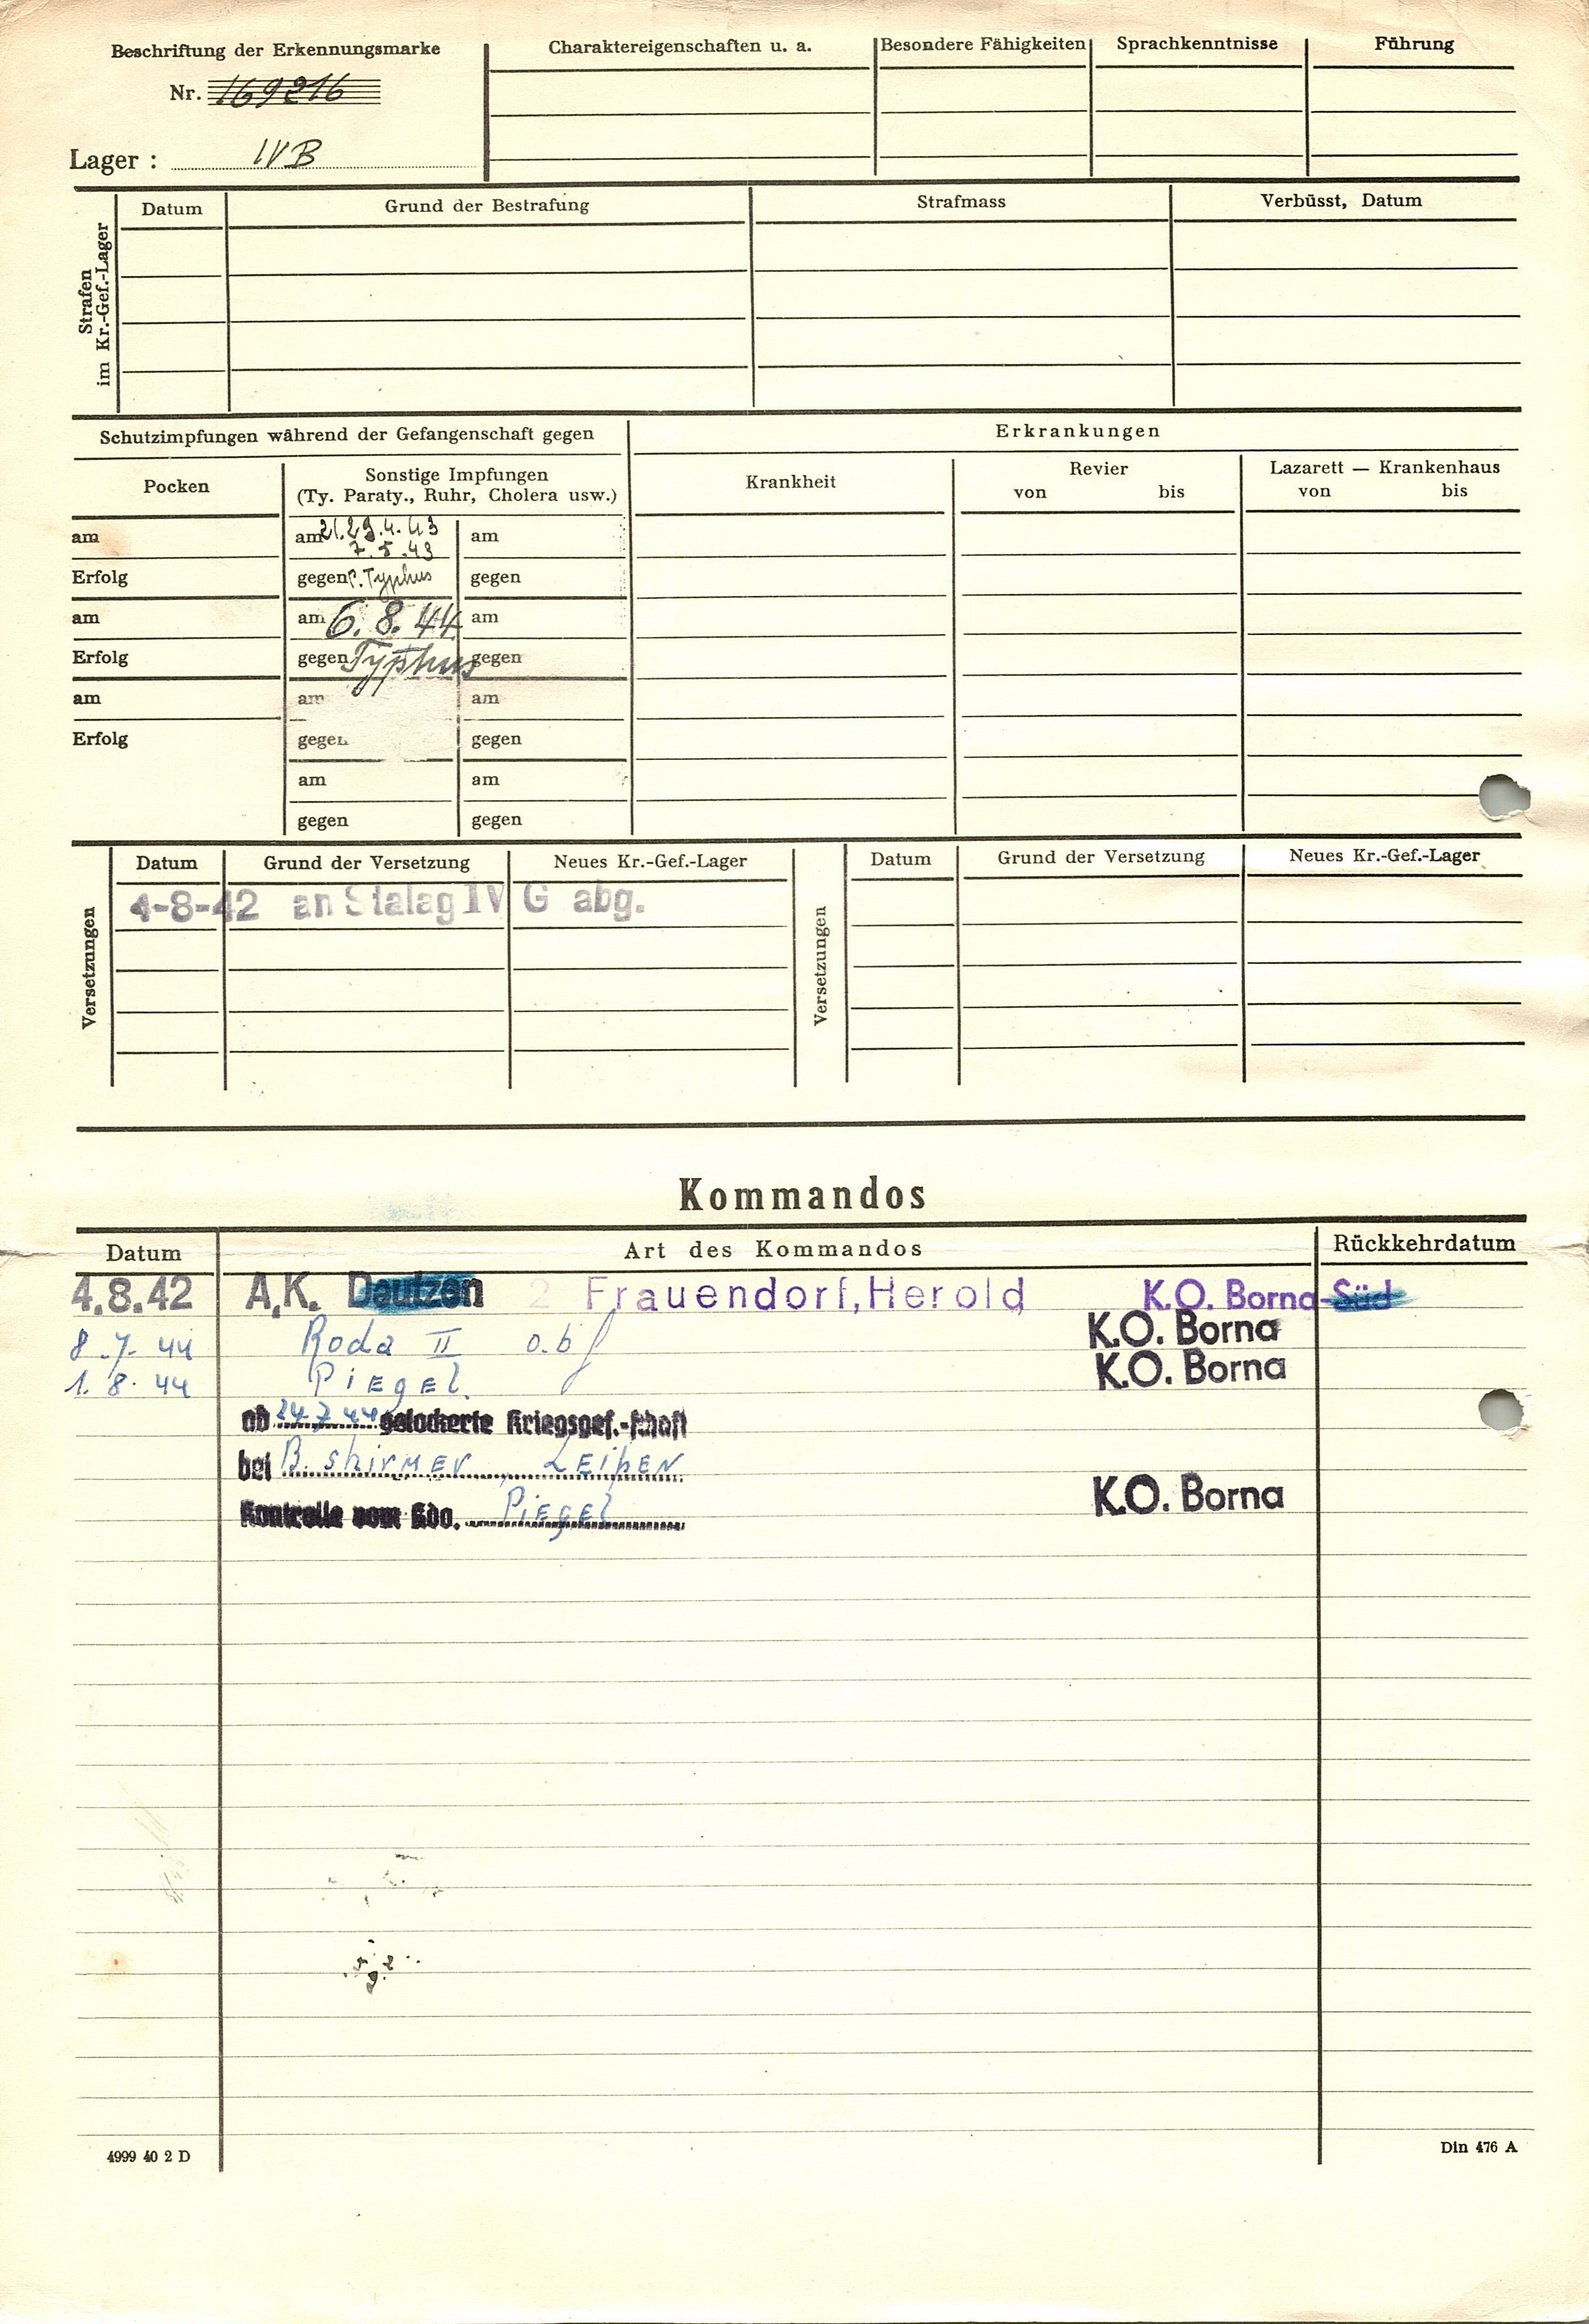 Beschriftung der Erkennungsmarke
Nr. 169216
Lager : IVB
Charaktereigenschaften u. a.
Besondere Fähigkeiten
Sprachkenntnisse
Führung
Strafen
im Kr.-Gef.-Lager
Datum Grund der Bestrafung Strafmass Verbüsst, Datum
Schutzimpfungen während der Gefangenschaft gegen
Erkrankungen
Pocken
Sonstige Impfungen
(Ty. Paraty., Ruhr, Cholera usw.)
Krankheit
Revier
von bis
Lazarett — Krankenhaus
von bis
am am 21.29.4.43 am
7.5.43
Erfolg gegen P. Typhus gegen
am am 6.8.44 am
Erfolg gegen Typhus gegen
am am am
Erfolg gegen gegen
am am
gegen gegen
Versetzungen
Datum Grund der Versetzung Neues Kr.-Gef.-Lager
4-8-42 an Stalag IV G abg.
Versetzungen
Datum Grund der Versetzung Neues Kr.-Gef.-Lager
Kommandos
Datum Art des Kommandos Rückkehrdatum
4.8.42 A.K. Deutzen 2 Frauendorf, Herold K.O. Borna-Süd
8.7.44 Roda II K.O. Borna
1.8.44 Piegel K.O. Borna
ab 24.7.44 gelockerte Kriegsgef.-schaft
bei B. Shirmer
Kontrolle vom Kdo. Piegel K.O. Borna
4999 40 2 D
Din 476 A